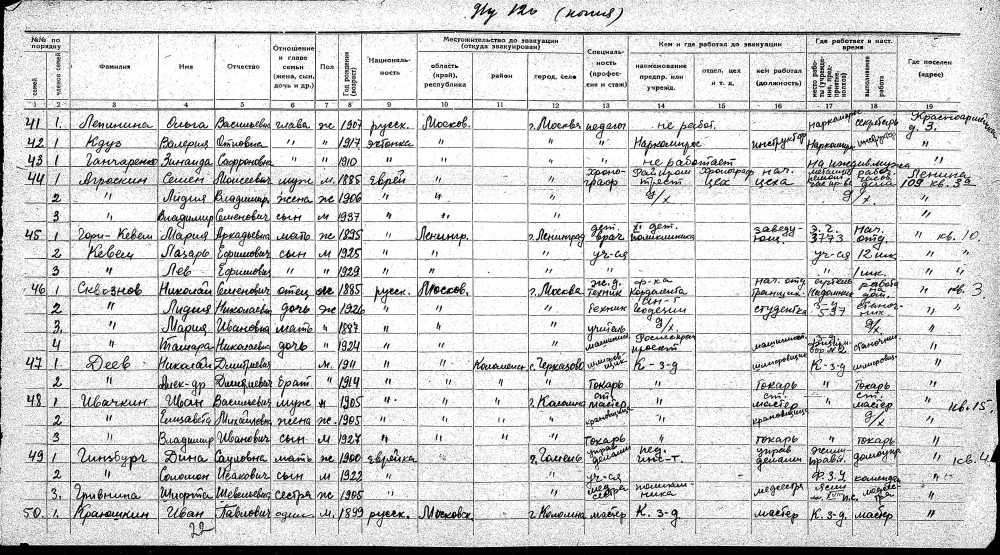 (копия)
№№ по порядку
семей
членов семей
Фамилия
Имя
Отчество
Отношение к главе семьи (жена, сын, дочь и др.)
Пол
Год рождения (возраст)
Национальность
Местожительство до эвакуации (откуда эвакуирован)
область (край), республика
район
город, село
Специальность (профессия и стаж)
Кем и где работал до эвакуации
наименование предпр. или учрежд.
отдел, цех и т. д.
кем работал (должность)
Где работает в наст. время
место работы (учреждение, предприятие, колхоз)
выполняемая работа
Где поселен (адрес)
1 2 3 4 5 6 7 8 9 10 11 12 13 14 15 16 17 18 19
41 1. Лепинина Ольга Васильевна глава ж 1907 русск. Москов. г. Москва педагог не работ. наркомпрос секретарь Красноармейская д. 3.
42 1 Кдуз Валерия Оттовна " " 1917 эстонка " " " " Наркомпрос инструктор Наркомпр. инструктор "
43 1 Ганчаренко Зинаида Сафроновна " " 1910 " " " " не работает на иждив. мужа "
44 1 Агроскин Семен Моисеевич муж м. 1885 Еврей " " Хронограф трест Хронограф цех нач. цеха Ленина 109 кв. 33
2 " Лидия Владимир. жена ж 1906 " " " д/х д/х "
3 " Владимир Семенович сын м 1937 " " " "
45 1 Гори-Кевеш Мария Аркадьевна мать ж 1895 " Ленингр. г. Ленинград дет. врач дет. поликлиника заведующ. э.г. 3773 нач. отд. " кв. 10.
2 Кевеш Лазарь Ефимович сын м 1925 " " " уч-ся уч-ся 12 шк. " "
3 " Лев Ефимович " " 1929 " " " " " 1 шк. " "
46 1 Сквознов Николай Семенович отец ж 1885 русск. Москов. г. Москва ж.д. техник ф-ка нач. отд. артель работа на дом. " кв. 3
2 " Лидия Николаевна дочь ж 1926 " " " техник Ин-т геодезии студентка з-д 597 "
3. " Мария Ивановна мать " 1887 " " " учитель д/х д/х "
4 " Тамара Николаевна дочь " 1924 " " "
47 1 Деев Николай Дмитриевич м. 1911 " " Коломенск с. Черкизово шлифовщик К-з-д шлифовщик К-з-д шлифовщ. "
2 " Алек-др Дмитриевич брат " 1914 " " " " Токарь " Токарь " Токарь "
48 1 Ивачкин Иван Васильевич муж " 1905 " " " г. Коломна ст. мастер " мастер " ст. мастер " кв. 15.
2 " Елизавета Михайловна жена ж. 1905 " " " " крановщица " крановщица " д/х "
3 " Владимир Иванович сын м 1927 " " " " Токарь " токарь " токарь "
49 1 Гинзбург Дина Сауловна мать ж 1900 еврейка г. Гомель управ делами пед. инс-т. управ делами домоупр. " кв. 4
2 " Соломон Исакович сын м 1922 " " уч-ся Ф.З.У "
3. Гривнина Ширфа Шевелевна сестра ж 1905 " " мед. сестра поликлиника медсестра "
50. 1. Краюшкин Иван Павлович один м. 1899 русск. Московск. г. Коломна мастер К. з-д мастер К. з-д мастер "
22